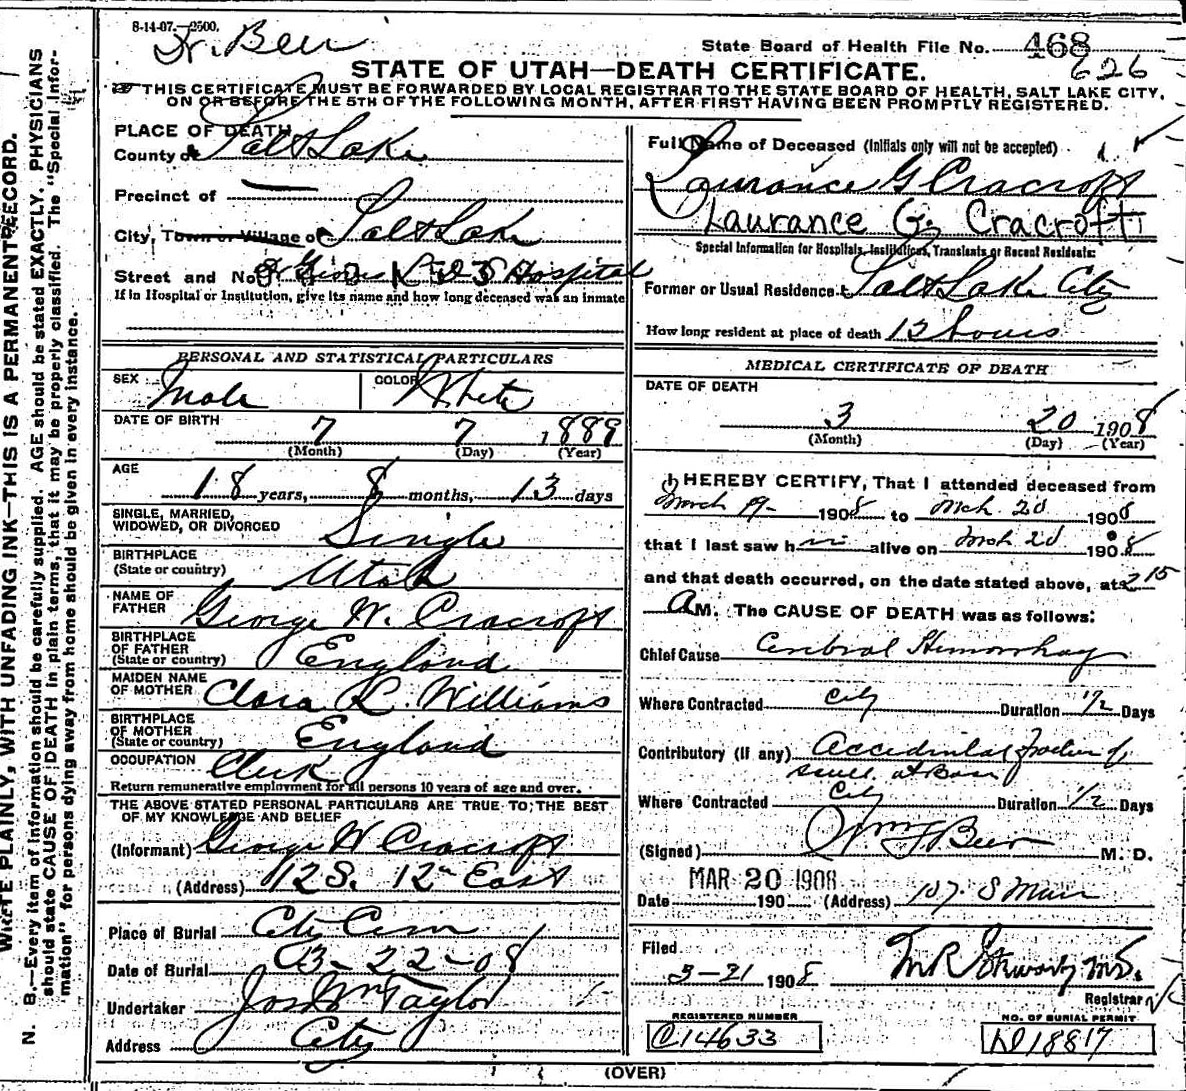 8-14-07.—2500.
Dr. Beer
State Board of Health File No. 468
626
STATE OF UTAH—DEATH CERTIFICATE.
THIS CERTIFICATE MUST BE FORWARDED BY LOCAL REGISTRAR TO THE STATE BOARD OF HEALTH, SALT LAKE CITY,
ON OR BEFORE THE 5TH OF THE FOLLOWING MONTH, AFTER FIRST HAVING BEEN PROMPTLY REGISTERED.
PLACE OF DEATH
County of Salt Lake
Precinct of
City, Town or Village of Salt Lake
Street and No. L D S Hospital
If in Hospital or Institution, give its name and how long deceased was an inmate
PERSONAL AND STATISTICAL PARTICULARS
SEX Male COLOR White
DATE OF BIRTH 7 7 1889
(Month) (Day) (Year)
AGE 18 years, 8 months, 13 days
SINGLE, MARRIED,
WIDOWED, OR DIVORCED Single
BIRTHPLACE
(State or country) Utah
NAME OF
FATHER George W. Cracroft
BIRTHPLACE
OF FATHER
(State or country) England
MAIDEN NAME
OF MOTHER Clara L. Williams
BIRTHPLACE
OF MOTHER
(State or country) England
OCCUPATION Clerk
Return remunerative employment for all persons 10 years of age and over.
THE ABOVE STATED PERSONAL PARTICULARS ARE TRUE TO THE BEST
OF MY KNOWLEDGE AND BELIEF
(Informant) George W Cracroft
(Address) 12 S. 12th East
Place of Burial City Cem
Date of Burial 3-22-08
Undertaker Jos Wm Taylor
Address City
Full Name of Deceased (Initials only will not be accepted)
Laurance G Cracroft
Laurance G. Cracroft
Special Information for Hospitals, Institutions, Transients or Recent Residents:
Former or Usual Residence Salt Lake City
How long resident at place of death 13 hours
MEDICAL CERTIFICATE OF DEATH
DATE OF DEATH
3 20 1908
(Month) (Day) (Year)
I HEREBY CERTIFY, That I attended deceased from
March 19- 1908 to Mch. 20 1908
that I last saw him alive on Mch 20 1908
and that death occurred, on the date stated above, at 2 15
A M. The CAUSE OF DEATH was as follows:
Chief Cause Cerebral Hemorrhage
Where Contracted City Duration 1/2 Days
Contributory (if any) Accidental fracture of
scull at base
Where Contracted City Duration 1/2 Days
(Signed) Wm F Beer M. D.
MAR 20 1908
Date 190 (Address) 107. S Main
Filed
3-21 1908 M.D.
Registrar
REGISTERED NUMBER NO. OF BURIAL PERMIT
C14633 D18817
(OVER)
N. B.—Every item of information should be carefully supplied. AGE should be stated EXACTLY. PHYSICIANS
should state CAUSE OF DEATH in plain terms, that it may be properly classified. The "Special Infor-
mation" for persons dying away from home should be given in every instance.
WRITE PLAINLY, WITH UNFADING INK—THIS IS A PERMANENT RECORD.